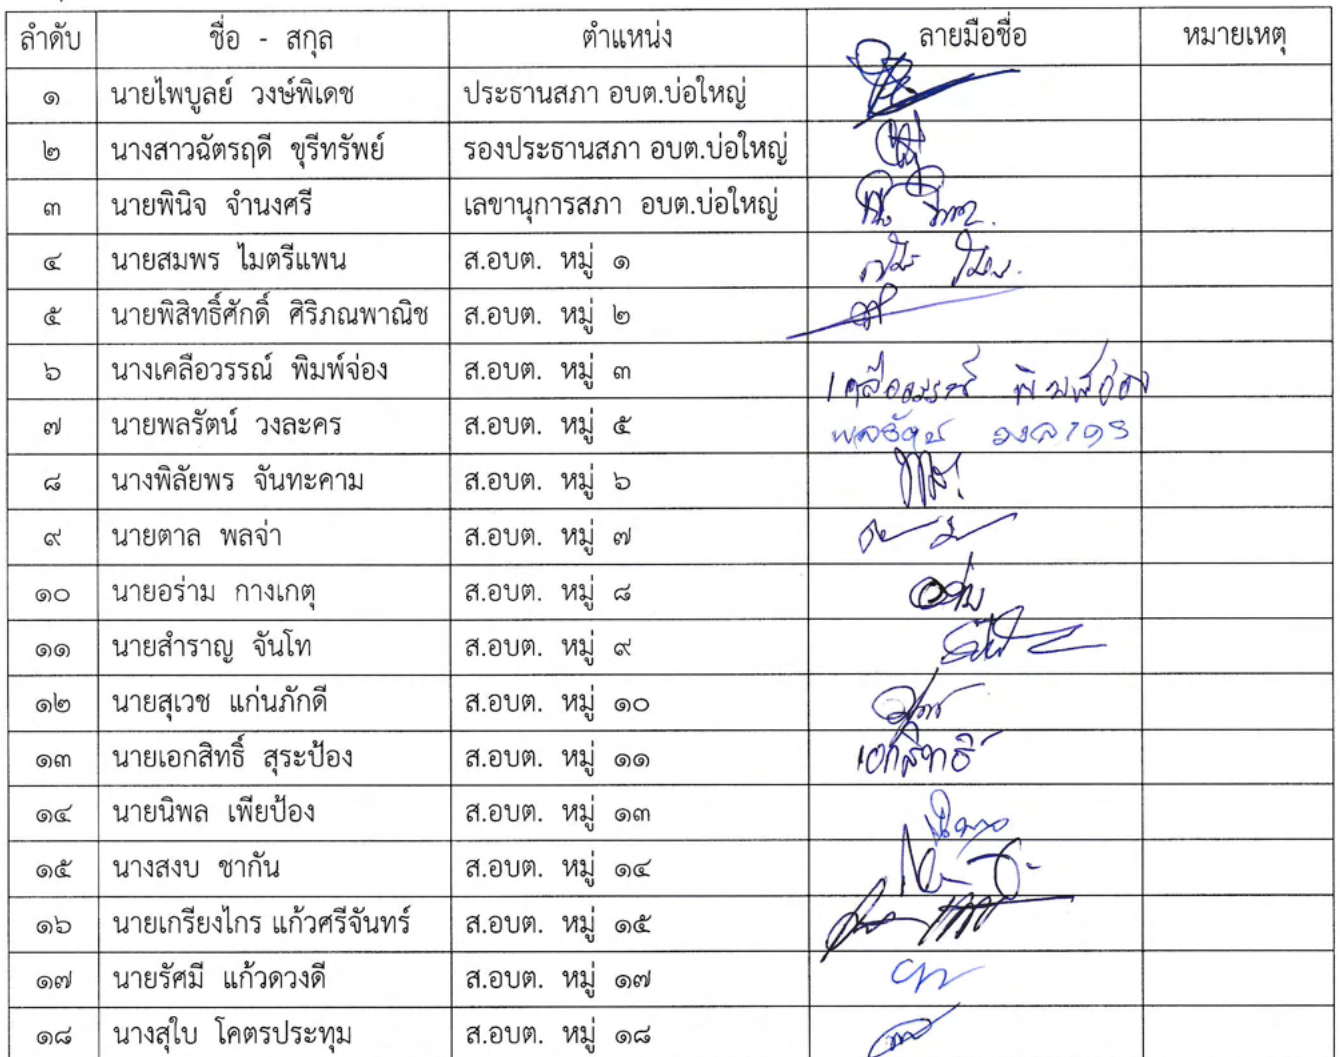 ลำดับ ชื่อ - สกุล ตำแหน่ง ลายมือชื่อ หมายเหตุ
๑ นายไพบูลย์ วงษ์พิเดช ประธานสภา อบต.บ่อใหญ่
๒ นางสาวฉัตรฤดี ขุรีทรัพย์ รองประธานสภา อบต.บ่อใหญ่
๓ นายพินิจ จำนงศรี เลขานุการสภา อบต.บ่อใหญ่
๔ นายสมพร ไมตรีแพน ส.อบต. หมู่ ๑
๕ นายพิสิทธิ์ศักดิ์ ศิริภณพาณิช ส.อบต. หมู่ ๒
๖ นางเคลือวรรณ์ พิมพ์จ่อง ส.อบต. หมู่ ๓ เคลือวรรณ์ พิมพ์จ่อง
๗ นายพลรัตน์ วงละคร ส.อบต. หมู่ ๕ พลรัตน์ วงละคร
๘ นางพิลัยพร จันทะคาม ส.อบต. หมู่ ๖
๙ นายตาล พลจ่า ส.อบต. หมู่ ๗
๑๐ นายอร่าม กางเกตุ ส.อบต. หมู่ ๘ อร่าม
๑๑ นายสำราญ จันโท ส.อบต. หมู่ ๙
๑๒ นายสุเวช แก่นภักดี ส.อบต. หมู่ ๑๐
๑๓ นายเอกสิทธิ์ สุระป้อง ส.อบต. หมู่ ๑๑ เอกสิทธิ์
๑๔ นายนิพล เพียป้อง ส.อบต. หมู่ ๑๓
๑๕ นางสงบ ชากัน ส.อบต. หมู่ ๑๔
๑๖ นายเกรียงไกร แก้วศรีจันทร์ ส.อบต. หมู่ ๑๕
๑๗ นายรัศมี แก้วดวงดี ส.อบต. หมู่ ๑๗
๑๘ นางสุใบ โคตรประทุม ส.อบต. หมู่ ๑๘